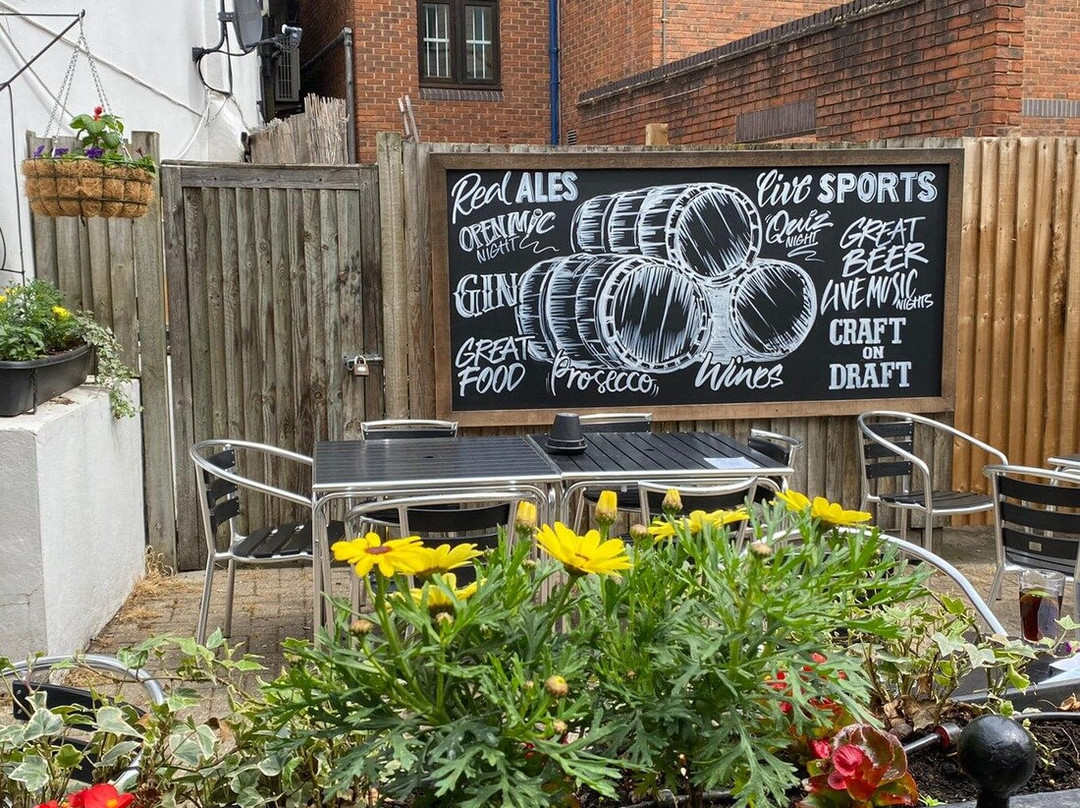 Real ALES
OPEN MIC
NIGHT
GIN
GREAT
FOOD
Prosecco
Wines
live SPORTS
Quiz
NIGHT
GREAT
BEER
LIVE MUSIC
NIGHTS
CRAFT
ON
DRAFT